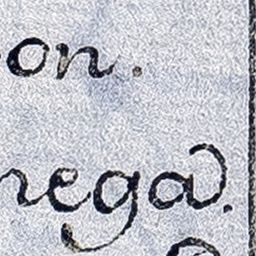 on.
nega).